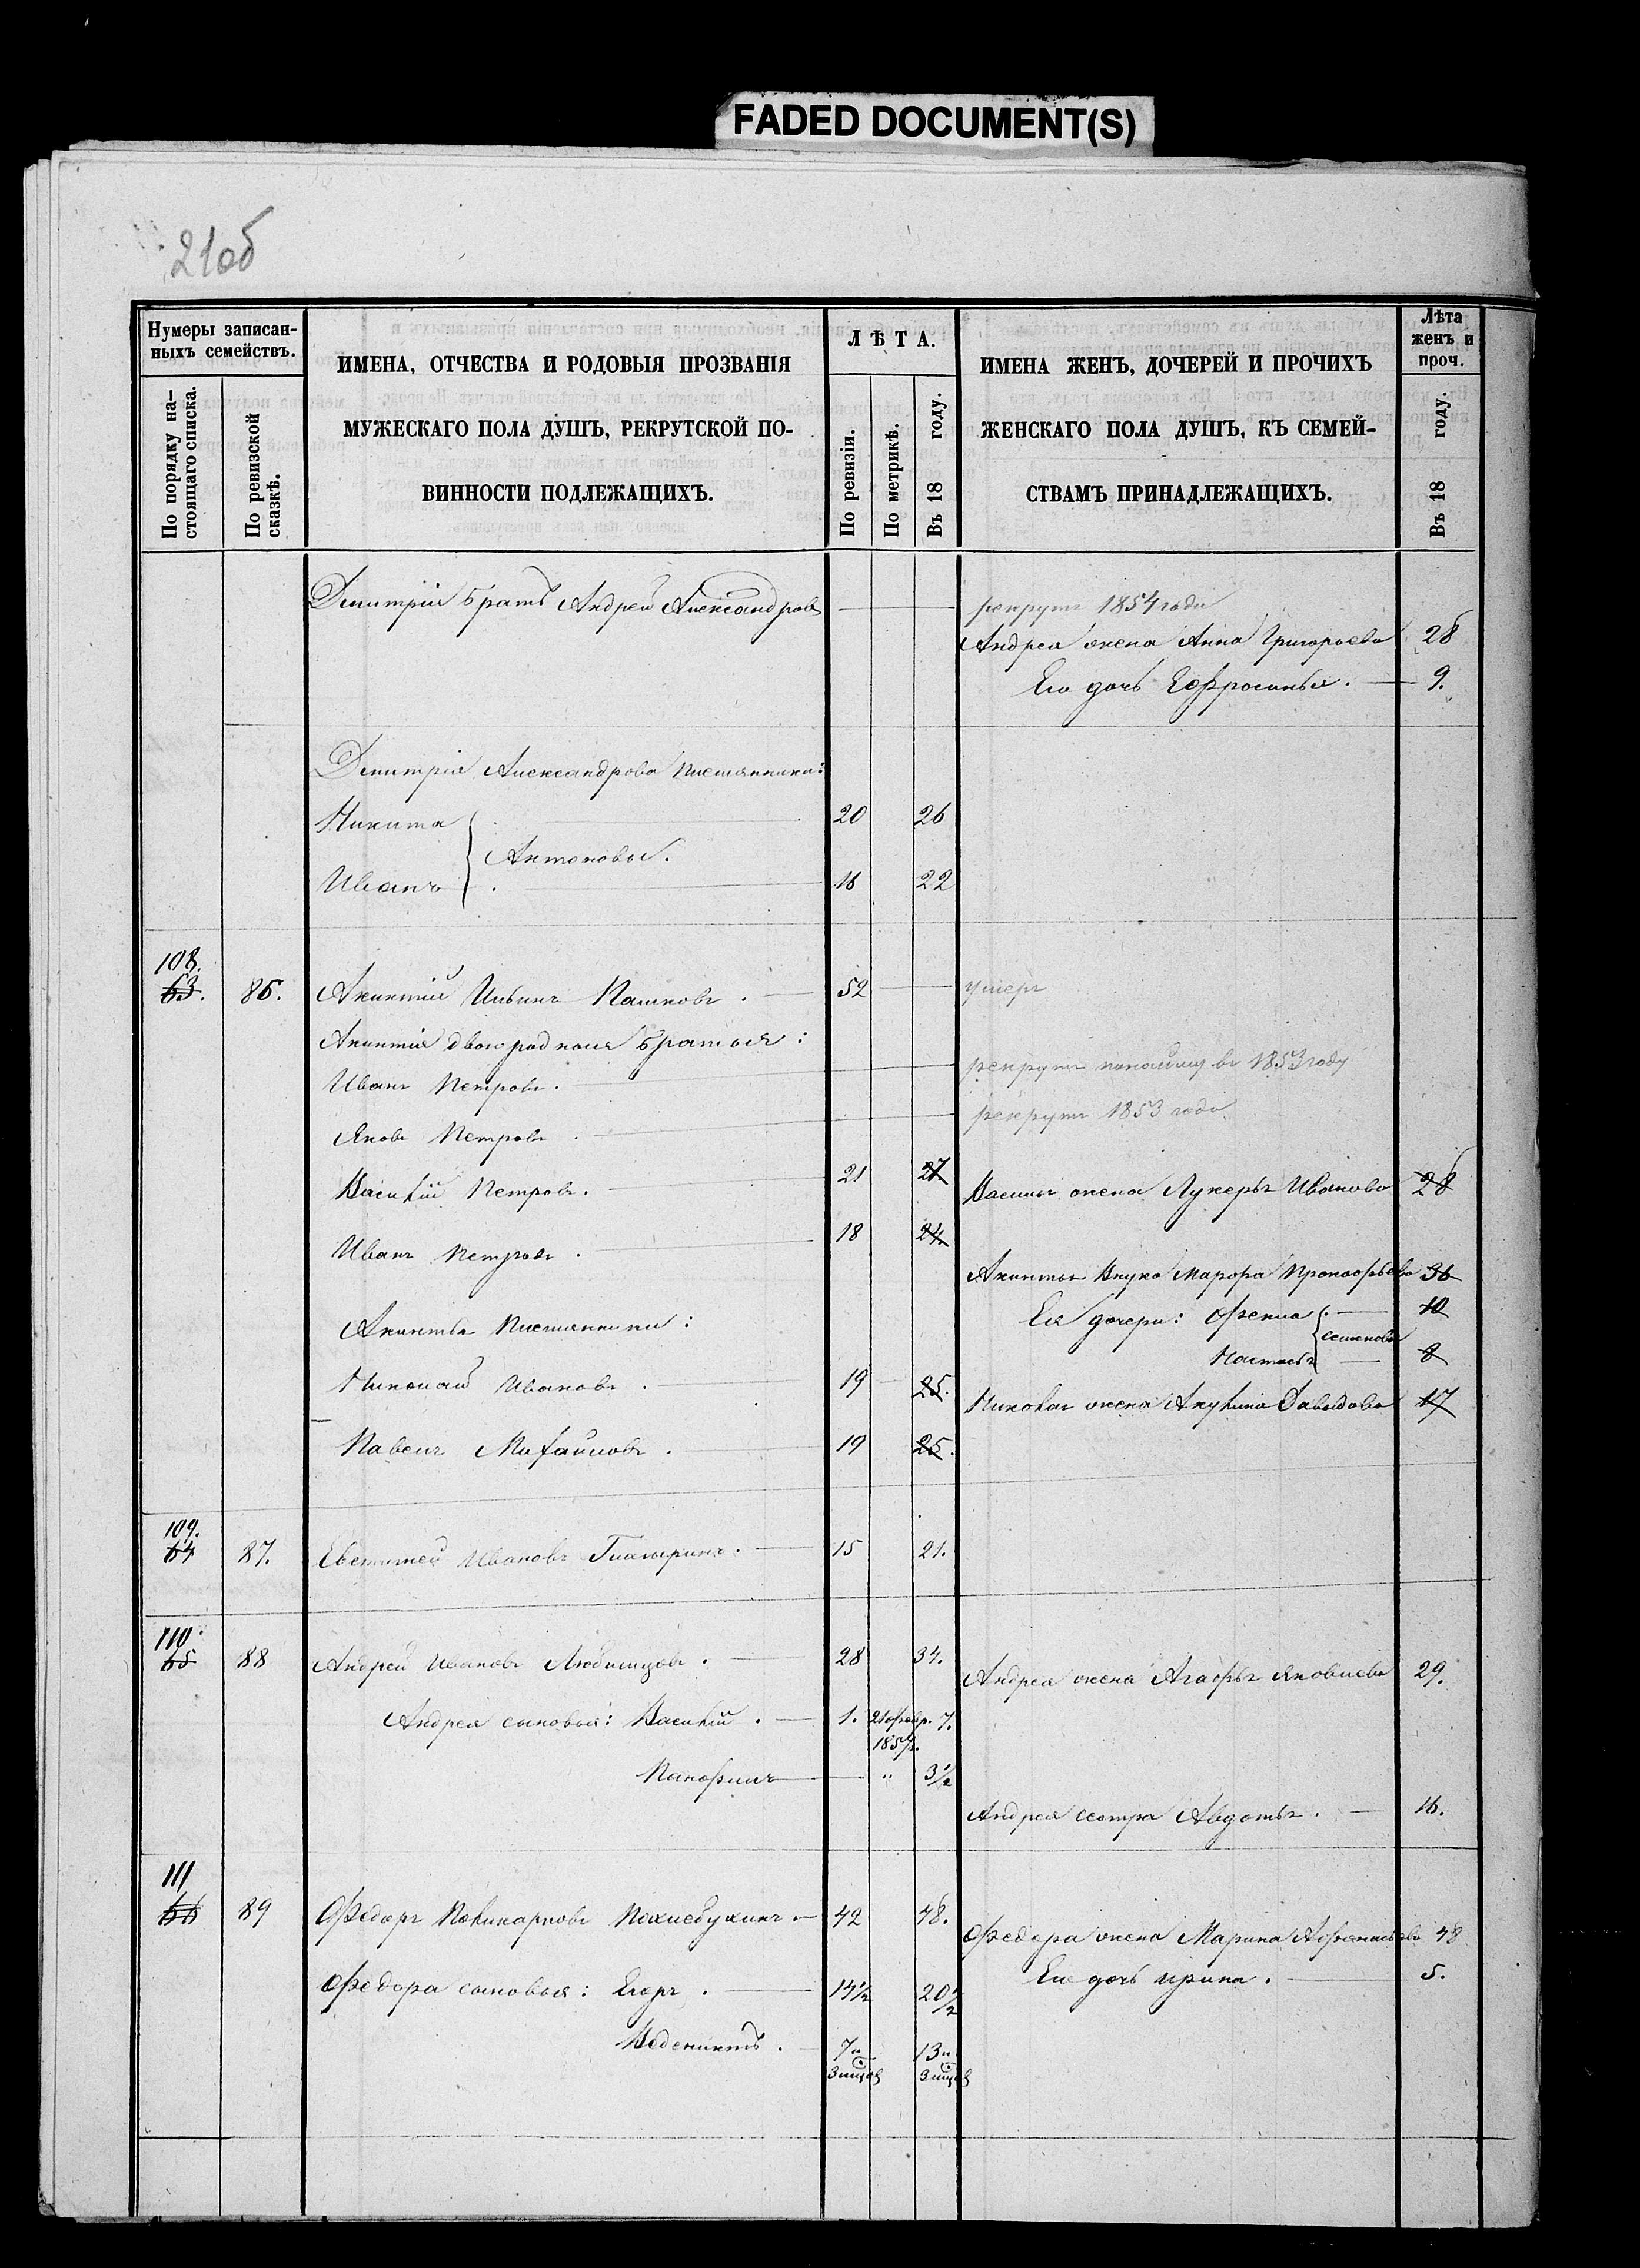 FADED DOCUMENT(S)
21об
Нумеры записан-
ныхъ семействъ.
По порядку на-
стоящаго списка.
По ревизской
сказкѣ.
ИМЕНА, ОТЧЕСТВА И РОДОВЫЯ ПРОЗВАНІЯ
МУЖЕСКАГО ПОЛА ДУШЪ, РЕКРУТСКОЙ ПО-
ВИННОСТИ ПОДЛЕЖАЩИХЪ.
ЛѢТА.
По ревизіи.
По метрикѣ.
Въ 18 году.
ИМЕНА ЖЕНЪ, ДОЧЕРЕЙ И ПРОЧИХЪ
ЖЕНСКАГО ПОЛА ДУШЪ, КЪ СЕМЕЙ-
СТВАМЪ ПРИНАДЛЕЖАЩИХЪ.
Лѣта
женъ и
проч.
Въ 18 году.
Дмитрія братъ Андрей Александровъ рекрутъ 1854 года
Андрея жена Анна Григорьева 28
Ея дочь Ефросинья. 9.
Дмитрія Александрова племянники:
Никита 20 26
Антоновы.
Иванъ 16 22
108.
63. 86. Акинтій Ильинъ Пашковъ. 52 умеръ
Акинтія двоюродныя братья:
Иванъ Петровъ. рекрутъ въ 1853 году
Яковъ Петровъ. рекрутъ 1853 года
Василій Петровъ. 21 27 Василья жена Лукерья Иванова 28
Иванъ Петровъ. 18 24.
Акинтья Марфа Прокофьева 36
Ея дочери: Фекла 10
Семеновы
Настасья 8
Акинтья племянники:
Николай Ивановъ. 19 25. Николая жена Акулина Давыдова 17
Павелъ Михайловъ. 19 25.
109.
64 87. Ивановъ 15 21.
110.
65 88 Андрей Ивановъ Любимцовъ. 28 34. Андрея жена Агафья Яковлева 29.
Андрея сыновья: Василій. 1. 21 февр. 7.
Панфилъ „ 3½
Андрея сестра Авдотья. 16.
111
66 89 Федоръ Поликарповъ 42 48. Федора жена Марина Афанасьева 48
Федора сыновья: Егоръ. 14½ 20½ Ея дочь Ирина. 5.
Веденихтъ. 7 и 13 и
3 мцов 3 мцов